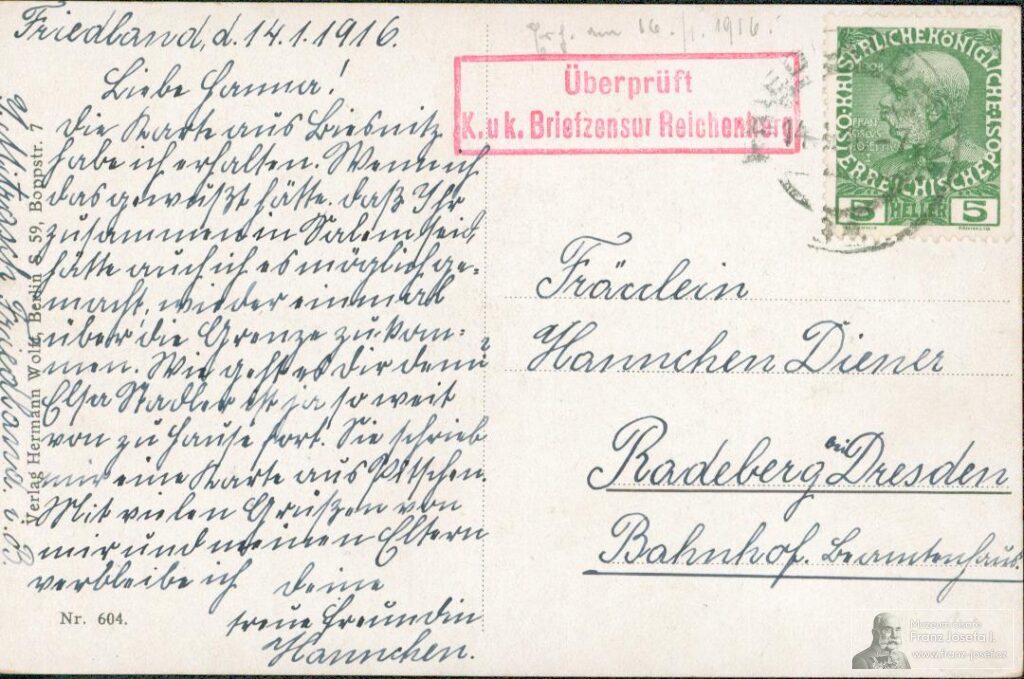 Friedland, d. 14.1.1916.
Liebe Hanna!
Die Karte aus Biesnitz
habe ich erhalten. Wenn ich
das gewußt hätte, daß Ihr
zusammen in Salem seid,
hätte auch ich es möglich ge-
macht, wieder einmal
über die Grenze zu kom-
men. Wie geht es Dir denn?
Elsa Stadler ist ja so weit
von zu Hause fort. Sie schrieb
mir eine Karte aus Pitschen.
Mit vielen Grüßen von
mir und meinen Eltern
verbleibe ich Deine
treue Freundin
Hannchen.
Friedland. i. B.
Verlag Hermann Wolff, Berlin S. 59, Boppstr. 4
Nr. 604.
am 16./1. 1916.
Überprüft
K. u k. Briefzensur Reichenberg
KAISERLICHE KÖNIGLICHE
ÖSTERREICHISCHE POST
5 HELLER 5
Fräulein
Hannchen Diener
Radeberg bei Dresden
Bahnhof. Beamtenhaus.
Muzeum císaře
Franz Josefa I.
www.franz-josef.cz